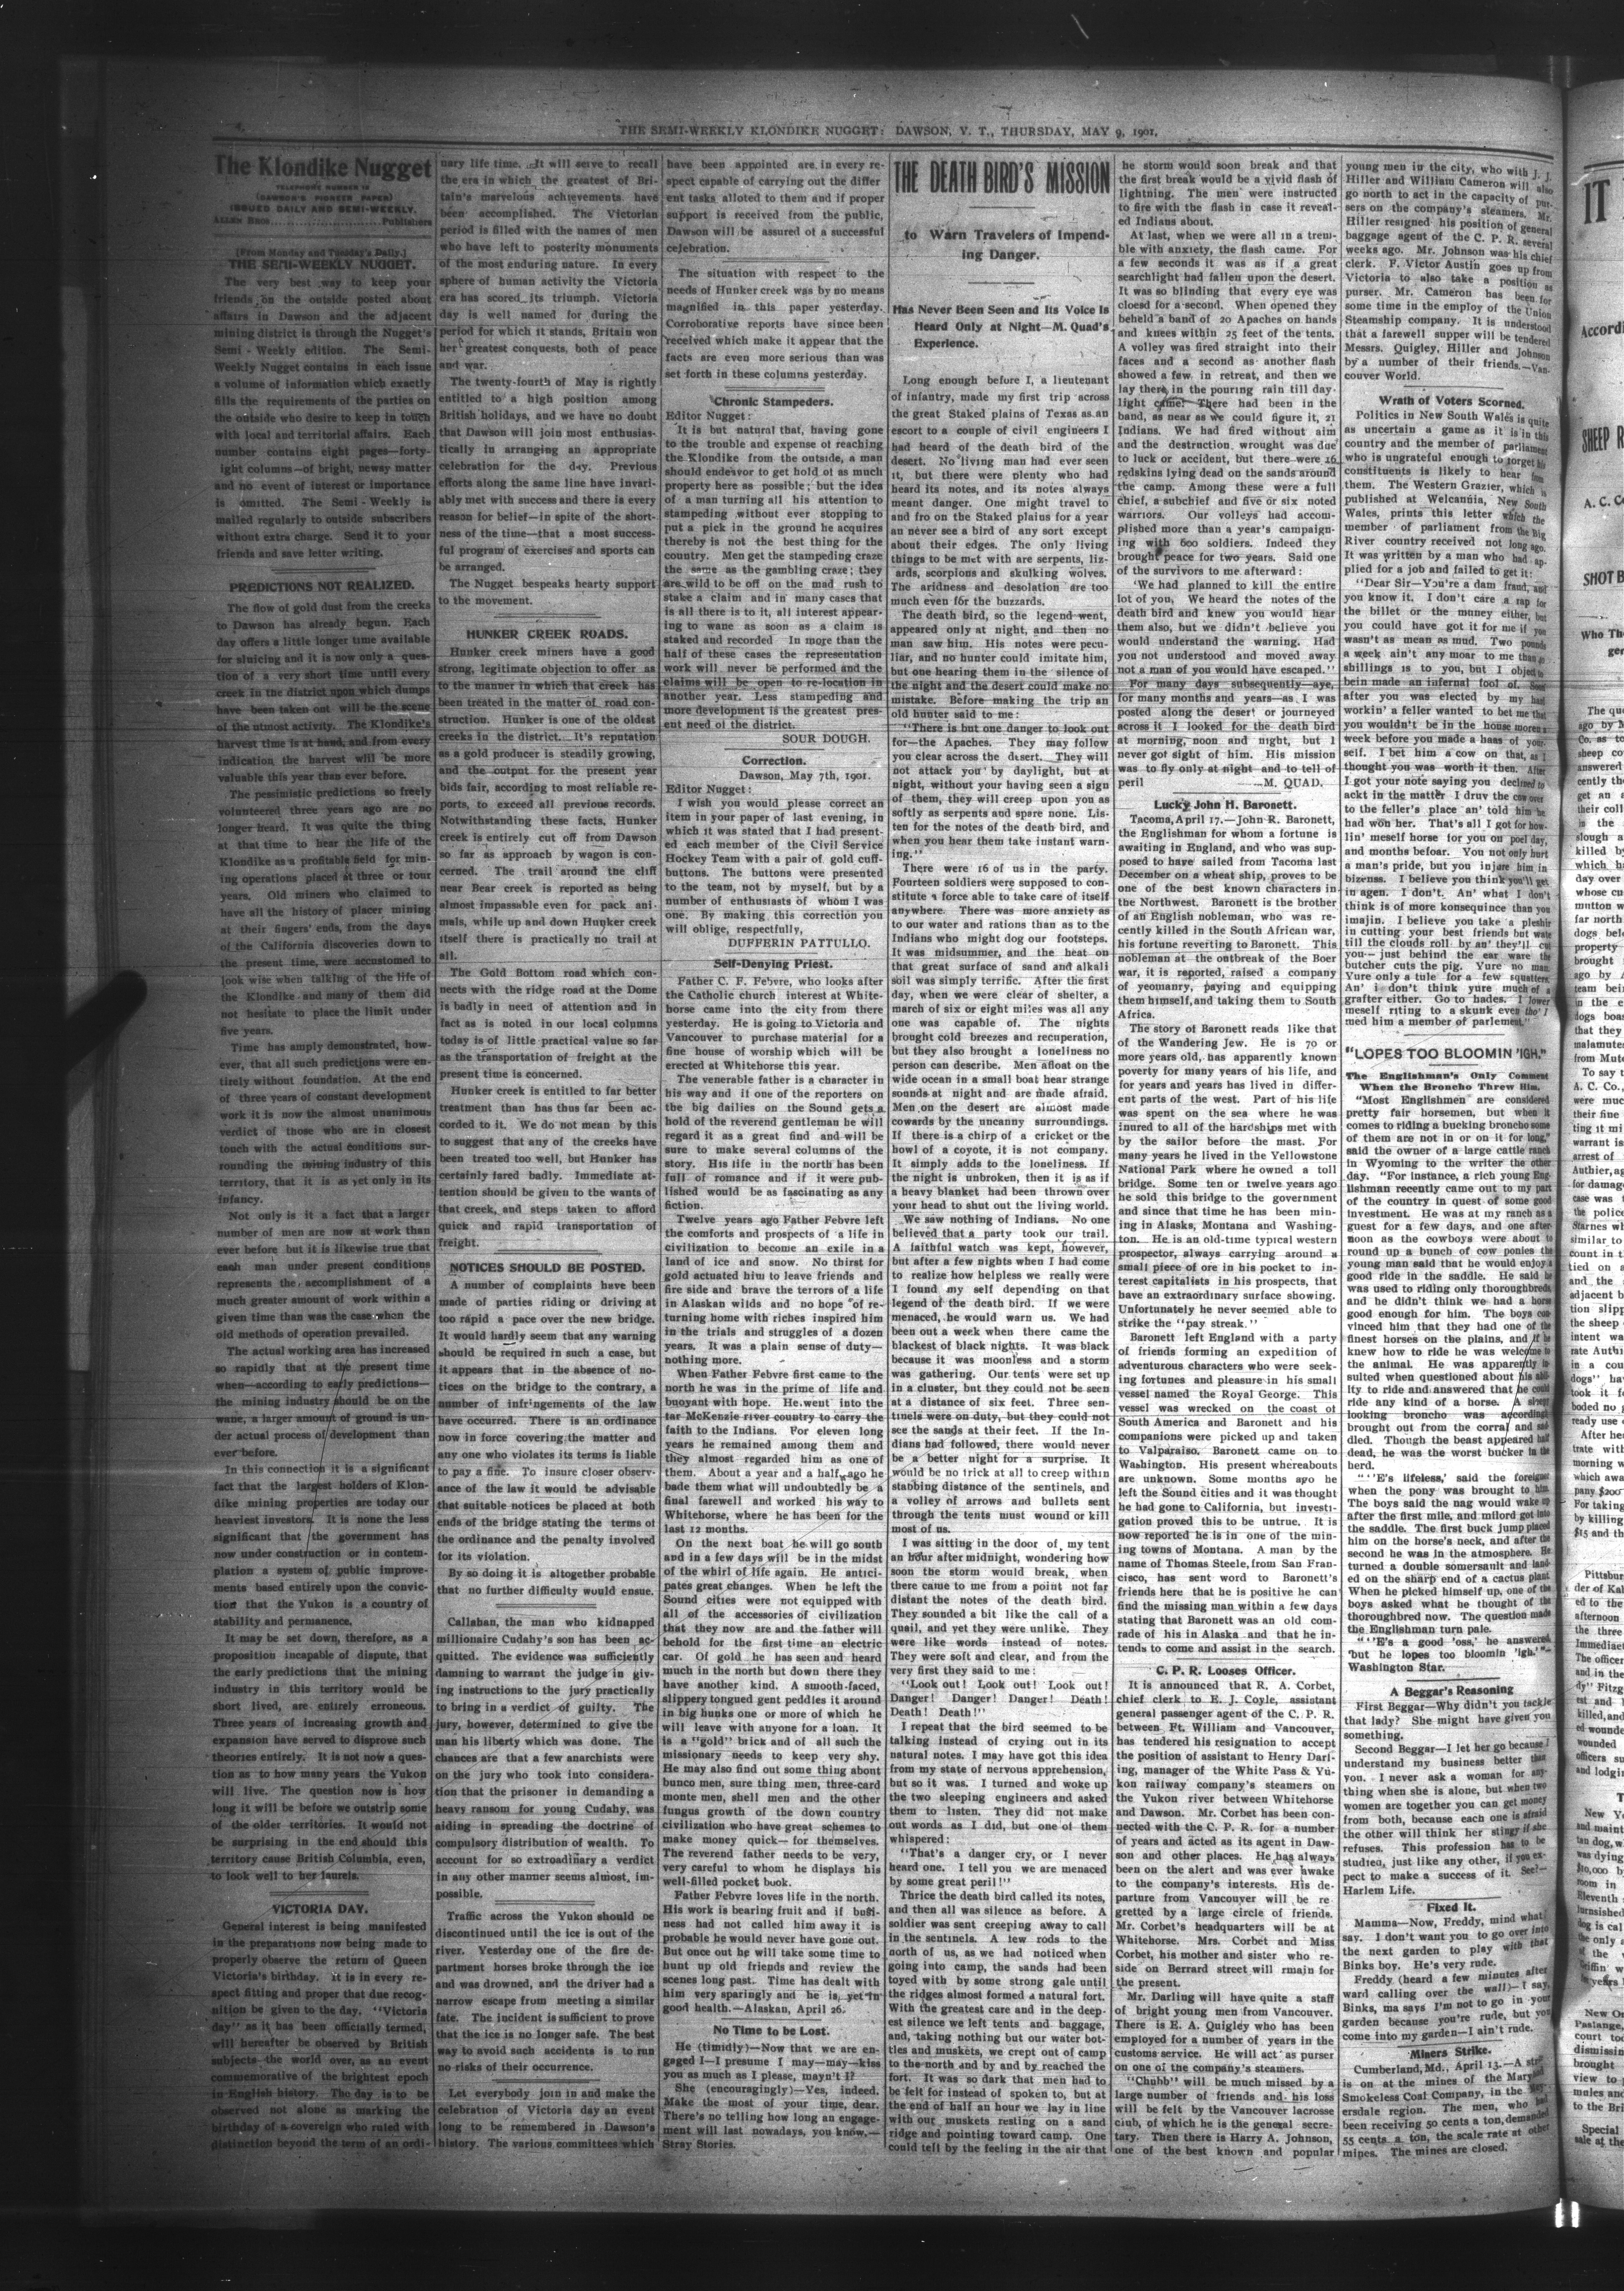 THE SEMI-WEEKLY KLONDIKE NUGGET: DAWSON, Y. T., THURSDAY, MAY 9, 1901.
The Klondike Nugget
TELEPHONE NUMBER 12
(DAWSON'S PIONEER PAPER)
ISSUED DAILY AND SEMI-WEEKLY.
ALLEN BROS. Publishers
[From Monday and Tuesday's Daily.]
THE SEMI-WEEKLY NUGGET.
The very best way to keep your
friends on the outside posted about
affairs in Dawson and the adjacent
mining district is through the Nugget's
Semi-Weekly edition. The Semi-
Weekly Nugget contains in each issue
a volume of information which exactly
fills the requirements of the parties on
the outside who desire to keep in touch
with local and territorial affairs. Each
number contains eight pages—forty-
ight columns—of bright, newsy matter
and no event of interest or importance
is omitted. The Semi-Weekly is
mailed regularly to outside subscribers
without extra charge. Send it to your
friends and save letter writing.
PREDICTIONS NOT REALIZED.
The flow of gold dust from the creeks
to Dawson has already begun. Each
day offers a little longer time available
for sluicing and it is now only a ques-
tion of a very short time until every
creek in the district upon which dumps
have been taken out will be the scene
of the utmost activity. The Klondike's
harvest time is at hand, and from every
indication the harvest will be more
valuable this year than ever before.
The pessimistic predictions so freely
volunteered three years ago are no
longer heard. It was quite the thing
at that time to hear the life of the
Klondike as a profitable field for min-
ing operations placed at three or four
years. Old miners who claimed to
have all the history of placer mining
at their fingers' ends, from the days
of the California discoveries down to
the present time, were accustomed to
look wise when talking of the life of
the Klondike and many of them did
not hesitate to place the limit under
five years.
Time has amply demonstrated, how-
ever, that all such predictions were en-
tirely without foundation. At the end
of three years of constant development
work it is now the almost unanimous
verdict of those who are in closest
touch with the actual conditions sur-
rounding the mining industry of this
territory, that it is as yet only in its
infancy.
Not only is it a fact that a larger
number of men are now at work than
ever before but it is likewise true that
each man under present conditions
represents the accomplishment of a
much greater amount of work within a
given time than was the case when the
old methods of operation prevailed.
The actual working area has increased
so rapidly that at the present time
when—according to early predictions—
the mining industry should be on the
wane, a larger amount of ground is un-
der actual process of development than
ever before.
In this connection it is a significant
fact that the largest holders of Klon-
dike mining properties are today our
heaviest investors. It is none the less
significant that the government has
now under construction or in contem-
plation a system of public improve-
ments based entirely upon the convic-
tion that the Yukon is a country of
stability and permanence.
It may be set down, therefore, as a
proposition incapable of dispute, that
the early predictions that the mining
industry in this territory would be
short lived, are entirely erroneous.
Three years of increasing growth and
expansion have served to disprove such
theories entirely. It is not now a ques-
tion as to how many years the Yukon
will live. The question now is how
long it will be before we outstrip some
of the older territories. It would not
be surprising in the end should this
territory cause British Columbia, even,
to look well to her laurels.
VICTORIA DAY.
General interest is being manifested
in the preparations now being made to
properly observe the return of Queen
Victoria's birthday. It is in every re-
spect fitting and proper that due recog-
nition be given to the day. "Victoria
day" as it has been officially termed,
will hereafter be observed by British
subjects the world over, as an event
commemorative of the brightest epoch
in English history. The day is to be
observed not alone as marking the
birthday of a sovereign who ruled with
distinction beyond the term of an ordi-
nary life time. It will serve to recall
the era in which the greatest of Bri-
tain's marvelous achievements have
been accomplished. The Victorian
period is filled with the names of men
who have left to posterity monuments
of the most enduring nature. In every
sphere of human activity the Victoria
era has scored its triumph. Victoria
day is well named for during the
period for which it stands, Britain won
her greatest conquests, both of peace
and war.
The twenty-fourth of May is rightly
entitled to a high position among
British holidays, and we have no doubt
that Dawson will join most enthusias-
tically in arranging an appropriate
celebration for the day. Previous
efforts along the same line have invari-
ably met with success and there is every
reason for belief—in spite of the short-
ness of the time—that a most success-
ful program of exercises and sports can
be arranged.
The Nugget bespeaks hearty support
to the movement.
HUNKER CREEK ROADS.
Hunker creek miners have a good
strong, legitimate objection to offer as
to the manner in which that creek has
been treated in the matter of road con-
struction. Hunker is one of the oldest
creeks in the district. It's reputation
as a gold producer is steadily growing,
and the output for the present year
bids fair, according to most reliable re-
ports, to exceed all previous records.
Notwithstanding these facts, Hunker
creek is entirely cut off from Dawson
so far as approach by wagon is con-
cerned. The trail around the cliff
near Bear creek is reported as being
almost impassable even for pack ani-
mals, while up and down Hunker creek
itself there is practically no trail at
all.
The Gold Bottom road which con-
nects with the ridge road at the Dome
is badly in need of attention and in
fact as is noted in our local columns
today is of little practical value so far
as the transportation of freight at the
present time is concerned.
Hunker creek is entitled to far better
treatment than has thus far been ac-
corded to it. We do not mean by this
to suggest that any of the creeks have
been treated too well, but Hunker has
certainly fared badly. Immediate at-
tention should be given to the wants of
that creek, and steps taken to afford
quick and rapid transportation of
freight.
NOTICES SHOULD BE POSTED.
A number of complaints have been
made of parties riding or driving at
too rapid a pace over the new bridge.
It would hardly seem that any warning
should be required in such a case, but
it appears that in the absence of no-
tices on the bridge to the contrary, a
number of infringements of the law
have occurred. There is an ordinance
now in force covering the matter and
any one who violates its terms is liable
to pay a fine. To insure closer observ-
ance of the law it would be advisable
that suitable notices be placed at both
ends of the bridge stating the terms of
the ordinance and the penalty involved
for its violation.
By so doing it is altogether probable
that no further difficulty would ensue.
Callahan, the man who kidnapped
millionaire Cudahy's son has been ac-
quitted. The evidence was sufficiently
damning to warrant the judge in giv-
ing instructions to the jury practically
to bring in a verdict of guilty. The
jury, however, determined to give the
man his liberty which was done. The
chances are that a few anarchists were
on the jury who took into considera-
tion that the prisoner in demanding a
heavy ransom for young Cudahy, was
aiding in spreading the doctrine of
compulsory distribution of wealth. To
account for so extroadinary a verdict
in any other manner seems almost, im-
possible.
Traffic across the Yukon should be
discontinued until the ice is out of the
river. Yesterday one of the fire de-
partment horses broke through the ice
and was drowned, and the driver had a
narrow escape from meeting a similar
fate. The incident is sufficient to prove
that the ice is no longer safe. The best
way to avoid such accidents is to run
no risks of their occurrence.
Let everybody join in and make the
celebration of Victoria day an event
long to be remembered in Dawson's
history. The various committees which
have been appointed are in every re-
spect capable of carrying out the differ
ent tasks alloted to them and if proper
support is received from the public,
Dawson will be assured of a successful
celebration.
The situation with respect to the
needs of Hunker creek was by no means
magnified in this paper yesterday.
Corroborative reports have since been
received which make it appear that the
facts are even more serious than was
set forth in these columns yesterday.
Chronic Stampeders.
Editor Nugget:
It is but natural that, having gone
to the trouble and expense of reaching
the Klondike from the outside, a man
should endeavor to get hold of as much
property here as possible; but the idea
of a man turning all his attention to
stampeding without ever stopping to
put a pick in the ground he acquires
thereby is not the best thing for the
country. Men get the stampeding craze
the same as the gambling craze; they
are wild to be off on the mad rush to
stake a claim and in many cases that
is all there is to it, all interest appear-
ing to wane as soon as a claim is
staked and recorded In more than the
half of these cases the representation
work will never be performed and the
claims will be open to re-location in
another year. Less stampeding and
more development is the greatest pres-
ent need of the district.
SOUR DOUGH.
Correction.
Dawson, May 7th, 1901.
Editor Nugget:
I wish you would please correct an
item in your paper of last evening, in
which it was stated that I had present-
ed each member of the Civil Service
Hockey Team with a pair of gold cuff-
buttons. The buttons were presented
to the team, not by myself, but by a
number of enthusiasts of whom I was
one. By making this correction you
will oblige, respectfully,
DUFFERIN PATTULLO.
Self-Denying Priest.
Father C. F. Febvre, who looks after
the Catholic church interest at White-
horse came into the city from there
yesterday. He is going to Victoria and
Vancouver to purchase material for a
fine house of worship which will be
erected at Whitehorse this year.
The venerable father is a character in
his way and if one of the reporters on
the big dailies on the Sound gets a
hold of the reverend gentleman he will
regard it as a great find and will be
sure to make several columns of the
story. His life in the north has been
full of romance and if it were pub-
lished would be as fascinating as any
fiction.
Twelve years ago Father Febvre left
the comforts and prospects of a life in
civilization to become an exile in a
land of ice and snow. No thirst for
gold actuated him to leave friends and
fire side and brave the terrors of a life
in Alaskan wilds and no hope of re-
turning home with riches inspired him
in the trials and struggles of a dozen
years. It was a plain sense of duty—
nothing more.
When Father Febvre first came to the
north he was in the prime of life and
buoyant with hope. He went into the
far McKenzie river country to carry the
faith to the Indians. For eleven long
years he remained among them and
they almost regarded him as one of
them. About a year and a half ago he
bade them what will undoubtedly be a
final farewell and worked his way to
Whitehorse, where he has been for the
last 12 months.
On the next boat he will go south
and in a few days will be in the midst
of the whirl of life again. He antici-
pates great changes. When he left the
Sound cities were not equipped with
all of the accessories of civilization
that they now are and the father will
behold for the first time an electric
car. Of gold he has seen and heard
much in the north but down there they
have another kind. A smooth-faced,
slippery tongued gent peddles it around
in big hunks one or more of which he
will leave with anyone for a loan. It
is a "gold" brick and of all such the
missionary needs to keep very shy.
He may also find out some thing about
bunco men, sure thing men, three-card
monte men, shell men and the other
fungus growth of the down country
civilization who have great schemes to
make money quick—for themselves.
The reverend father needs to be very,
very careful to whom he displays his
well-filled pocket book.
Father Febvre loves life in the north.
His work is bearing fruit and if busi-
ness had not called him away it is
probable he would never have gone out.
But once out he will take some time to
hunt up old friends and review the
scenes long past. Time has dealt with
him very sparingly and he is yet in
good health.—Alaskan, April 26.
No Time to be Lost.
He (timidly)—Now that we are en-
gaged I—I presume I may—may—kiss
you as much as I please, mayn't I?
She (encouragingly)—Yes, indeed.
Make the most of your time, dear.
There's no telling how long an engage-
ment will last nowadays, you know.—
Stray Stories.
THE DEATH BIRD'S MISSION
to Warn Travelers of Impend-
ing Danger.
Has Never Been Seen and Its Voice Is
Heard Only at Night—M. Quad's
Experience.
Long enough before I, a lieutenant
of infantry, made my first trip across
the great Staked plains of Texas as an
escort to a couple of civil engineers I
had heard of the death bird of the
desert. No living man had ever seen
it, but there were plenty who had
heard its notes, and its notes always
meant danger. One might travel to
and fro on the Staked plains for a year
an never see a bird of any sort except
about their edges. The only living
things to be met with are serpents, liz-
ards, scorpions and skulking wolves.
The aridness and desolation are too
much even for the buzzards.
The death bird, so the legend went,
appeared only at night, and then no
man saw him. His notes were pecu-
liar, and no hunter could imitate him,
but one hearing them in the silence of
the night and the desert could make no
mistake. Before making the trip an
old hunter said to me:
"There is but one danger to look out
for—the Apaches. They may follow
you clear across the desert. They will
not attack you by daylight, but at
night, without your having seen a sign
of them, they will creep upon you as
softly as serpents and spare none. Lis-
ten for the notes of the death bird, and
when you hear them take instant warn-
ing."
There were 16 of us in the party.
Fourteen soldiers were supposed to con-
stitute a force able to take care of itself
anywhere. There was more anxiety as
to our water and rations than as to the
Indians who might dog our footsteps.
It was midsummer, and the heat on
that great surface of sand and alkali
soil was simply terrific. After the first
day, when we were clear of shelter, a
march of six or eight miles was all any
one was capable of. The nights
brought cold breezes and recuperation,
but they also brought a loneliness no
person can describe. Men afloat on the
wide ocean in a small boat hear strange
sounds at night and are made afraid.
Men on the desert are almost made
cowards by the uncanny surroundings.
If there is a chirp of a cricket or the
howl of a coyote, it is not company.
It simply adds to the loneliness. If
the night is unbroken, then it is as if
a heavy blanket had been thrown over
your head to shut out the living world.
We saw nothing of Indians. No one
believed that a party took our trail.
A faithful watch was kept, however,
but after a few nights when I had come
to realize how helpless we really were
I found my self depending on that
legend of the death bird. If we were
menaced, he would warn us. We had
been out a week when there came the
blackest of black nights. It was black
because it was moonless and a storm
was gathering. Our tents were set up
in a cluster, but they could not be seen
at a distance of six feet. Three sen-
tinels were on duty, but they could not
see the sands at their feet. If the In-
dians had followed, there would never
be a better night for a surprise. It
would be no trick at all to creep within
stabbing distance of the sentinels, and
a volley of arrows and bullets sent
through the tents must wound or kill
most of us.
I was sitting in the door of my tent
an hour after midnight, wondering how
soon the storm would break, when
there came to me from a point not far
distant the notes of the death bird.
They sounded a bit like the call of a
quail, and yet they were unlike. They
were like words instead of notes.
They were soft and clear, and from the
very first they said to me:
"Look out! Look out! Look out!
Danger! Danger! Danger! Death!
Death! Death!"
I repeat that the bird seemed to be
talking instead of crying out in its
natural notes. I may have got this idea
from my state of nervous apprehension,
but so it was. I turned and woke up
the two sleeping engineers and asked
them to listen. They did not make
out words as I did, but one of them
whispered:
"That's a danger cry, or I never
heard one. I tell you we are menaced
by some great peril!"
Thrice the death bird called its notes,
and then all was silence as before. A
soldier was sent creeping away to call
in the sentinels. A few rods to the
north of us, as we had noticed when
going into camp, the sands had been
toyed with by some strong gale until
the ridges almost formed a natural fort.
With the greatest care and in the deep-
est silence we left tents and baggage,
and, taking nothing but our water bot-
tles and muskets, we crept out of camp
to the north and by and by reached the
fort. It was so dark that men had to
be felt for instead of spoken to, but at
the end of half an hour we lay in line
with our muskets resting on a sand
ridge and pointing toward camp. One
could tell by the feeling in the air that
he storm would soon break and that
the first break would be a vivid flash of
lightning. The men were instructed
to fire with the flash in case it reveal-
ed Indians about.
At last, when we were all in a trem-
ble with anxiety, the flash came. For
a few seconds it was as if a great
searchlight had fallen upon the desert.
It was so blinding that every eye was
cloesd for a second. When opened they
beheld a band of 20 Apaches on hands
and knees within 25 feet of the tents.
A volley was fired straight into their
faces and a second as another flash
showed a few in retreat, and then we
lay there in the pouring rain till day-
light came. There had been in the
band, as near as we could figure it, 21
Indians. We had fired without aim
and the destruction wrought was due
to luck or accident, but there were 16
redskins lying dead on the sands around
the camp. Among these were a full
chief, a subchief and five or six noted
warriors. Our volleys had accom-
plished more than a year's campaign-
ing with 600 soldiers. Indeed they
brought peace for two years. Said one
of the survivors to me afterward:
'We had planned to kill the entire
lot of you. We heard the notes of the
death bird and knew you would hear
them also, but we didn't believe you
would understand the warning. Had
you not understood and moved away
not a man of you would have escaped."
For many days subsequently—aye,
for many months and years—as I was
posted along the desert or journeyed
across it I looked for the death bird
at morning, noon and night, but I
never got sight of him. His mission
was to fly only at night and to tell of
peril —M. QUAD.
Lucky John H. Baronett.
Tacoma, April 17.—John R. Baronett,
the Englishman for whom a fortune is
awaiting in England, and who was sup-
posed to have sailed from Tacoma last
December on a wheat ship, proves to be
one of the best known characters in
the Northwest. Baronett is the brother
of an English nobleman, who was re-
cently killed in the South African war,
his fortune reverting to Baronett. This
nobleman at the outbreak of the Boer
war, it is reported, raised a company
of yeomanry, paying and equipping
them himself, and taking them to South
Africa.
The story of Baronett reads like that
of the Wandering Jew. He is 70 or
more years old, has apparently known
poverty for many years of his life, and
for years and years has lived in differ-
ent parts of the west. Part of his life
was spent on the sea where he was
inured to all of the hardships met with
by the sailor before the mast. For
many years he lived in the Yellowstone
National Park where he owned a toll
bridge. Some ten or twelve years ago
he sold this bridge to the government
and since that time he has been min-
ing in Alaska, Montana and Washing-
ton. He is an old-time typical western
prospector, always carrying around a
small piece of ore in his pocket to in-
terest capitalists in his prospects, that
have an extraordinary surface showing.
Unfortunately he never seemed able to
strike the "pay streak."
Baronett left England with a party
of friends forming an expedition of
adventurous characters who were seek-
ing fortunes and pleasure in his small
vessel named the Royal George. This
vessel was wrecked on the coast of
South America and Baronett and his
companions were picked up and taken
to Valparaiso. Baronett came on to
Washington. His present whereabouts
are unknown. Some months ago he
left the Sound cities and it was thought
he had gone to California, but investi-
gation proved this to be untrue. It is
now reported he is in one of the min-
ing towns of Montana. A man by the
name of Thomas Steele, from San Fran-
cisco, has sent word to Baronett's
friends here that he is positive he can
find the missing man within a few days
stating that Baronett was an old com-
rade of his in Alaska and that he in-
tends to come and assist in the search.
C. P. R. Looses Officer.
It is announced that R. A. Corbet,
chief clerk to E. J. Coyle, assistant
general passenger agent of the C. P. R.
between Ft. William and Vancouver,
has tendered his resignation to accept
the position of assistant to Henry Darl-
ing, manager of the White Pass & Yu-
kon railway company's steamers on
the Yukon river between Whitehorse
and Dawson. Mr. Corbet has been con-
nected with the C. P. R. for a number
of years and acted as its agent in Daw-
son and other places. He has always
been on the alert and was ever awake
to the company's interests. His de-
parture from Vancouver will be re-
gretted by a large circle of friends.
Mr. Corbet's headquarters will be at
Whitehorse. Mrs. Corbet and Miss
Corbet, his mother and sister who re-
side on Berrard street will rmain for
the present.
Mr. Darling will have quite a staff
of bright young men from Vancouver.
There is E. A. Quigley who has been
employed for a number of years in the
customs service. He will act as purser
on one of the company's steamers.
"Chubb" will be much missed by a
large number of friends and his loss
will be felt by the Vancouver lacrosse
club, of which he is the general secre-
tary. Then there is Harry A. Johnson,
one of the best known and popular
young men in the city, who with J. J.
Hiller and William Cameron will also
go north to act in the capacity of pur-
sers on the company's steamers. Mr.
Hiller resigned his position of general
baggage agent of the C. P. R. several
weeks ago. Mr. Johnson was his chief
clerk. F. Victor Austin goes up from
Victoria to also take a position as
purser. Mr. Cameron has been for
some time in the employ of the Union
Steamship company. It is understood
that a farewell supper will be tendered
Messrs. Quigley, Hiller and Johnson
by a number of their friends.—Van-
couver World.
Wrath of Voters Scorned.
Politics in New South Wales is quite
as uncertain a game as it is in this
country and the member of parliament
who is ungrateful enough to forget his
constituents is likely to hear from
them. The Western Grazier, which is
published at Welcannia, New South
Wales, prints this letter which the
member of parliament from the Big
River country received not long ago.
It was written by a man who had ap-
plied for a job and failed to get it:
"Dear Sir—You're a dam fraud, and
you know it. I don't care a rap for
the billet or the muney either, but
you could have got it for me if you
wasn't as mean as mud. Two pounds
a week ain't any moar to me than 40
shillings is to you, but I objed to
bein made an infernal fool of. Soon
after you was elected by my hard
workin' a feller wanted to bet me that
you wouldn't be in the house moren a
week before you made a haas of your
self. I bet him a cow on that, as I
thought you was worth it then. After
I got your note saying you declined to
ackt in the matter I druv the cow over
to the feller's place an' told him he
had won her. That's all I got for how-
lin' meself horse for you on poel day,
and months befoar. You not only hurt
a man's pride, but you injure him in
bizenss. I believe you think you'll get
in agen. I don't. An' what I don't
think is of more konsequince than you
imajin. I believe you take a pleshir
in cutting your best friends but wate
till the clouds roll by an' they'll cut
you—just behind the ear ware the
butcher cuts the pig. Yure no man.
Yure only a tule for a few squatters.
An' i don't think yure much of a
grafter either. Go to hades. I lower
meself riting to a skunk even tho' I
med him a member of parlement."
"LOPES TOO BLOOMIN 'IGH."
The Englishman's Only Comment
When the Broncho Threw Him.
"Most Englishmen are considered
pretty fair horsemen, but when it
comes to riding a bucking broncho some
of them are not in or on it for long,"
said the owner of a large cattle ranch
in Wyoming to the writer the other
day. "For instance, a rich young Eng-
lishman recently came out to my part
of the country in quest of some good
investment. He was at my ranch as a
guest for a few days, and one after-
noon as the cowboys were about to
round up a bunch of cow ponies the
young man said that he would enjoy a
good ride in the saddle. He said he
was used to riding only thoroughbreds,
and he didn't think we had a horse
good enough for him. The boys con-
vinced him that they had one of the
finest horses on the plains, and if he
knew how to ride he was welcome to
the animal. He was apparently in-
sulted when questioned about his abil-
ity to ride and answered that he could
ride any kind of a horse. A sleepy
looking broncho was accordingly
brought out from the corral and sad
died. Though the beast appeared half
dead, he was the worst bucker in the
herd.
"''E's lifeless,' said the foreigner
when the pony was brought to him.
The boys said the nag would wake up
after the first mile, and milord got into
the saddle. The first buck jump placed
him on the horse's neck, and after the
second he was in the atmosphere. He
turned a double somersault and land-
ed on the sharp end of a cactus plant
When he picked himself up, one of the
boys asked what he thought of the
thoroughbred now. The question made
the Englishman turn pale.
"''E's a good 'oss,' he answered
'but he lopes too bloomin 'igh.'"—
Washington Star.
A Beggar's Reasoning
First Beggar—Why didn't you tackle
that lady? She might have given you
something.
Second Beggar—I let her go because I
understand my business better than
you. I never ask a woman for any-
thing when she is alone, but when two
women are together you can get money
from both, because each one is afraid
the other will think her stingy if she
refuses. This profession has to be
studied, just like any other, if you ex-
pect to make a success of it. See?—
Harlem Life.
Fixed It.
Mamma—Now, Freddy, mind what I
say. I don't want you to go over into
the next garden to play with that
Binks boy. He's very rude.
Freddy (heard a few minutes after
ward calling over the wall)—I say,
Binks, ma says I'm not to go in your
garden because you're rude, but you
come into my garden—I ain't rude.
Miners Strike.
Cumberland, Md., April 13.—A strike
is on at the mines of the Maryland
Smokeless Coal Company, in the
ersdale region. The men, who had
been receiving 50 cents a ton, demanded
55 cents a ton, the scale rate at other
mines. The mines are closed.